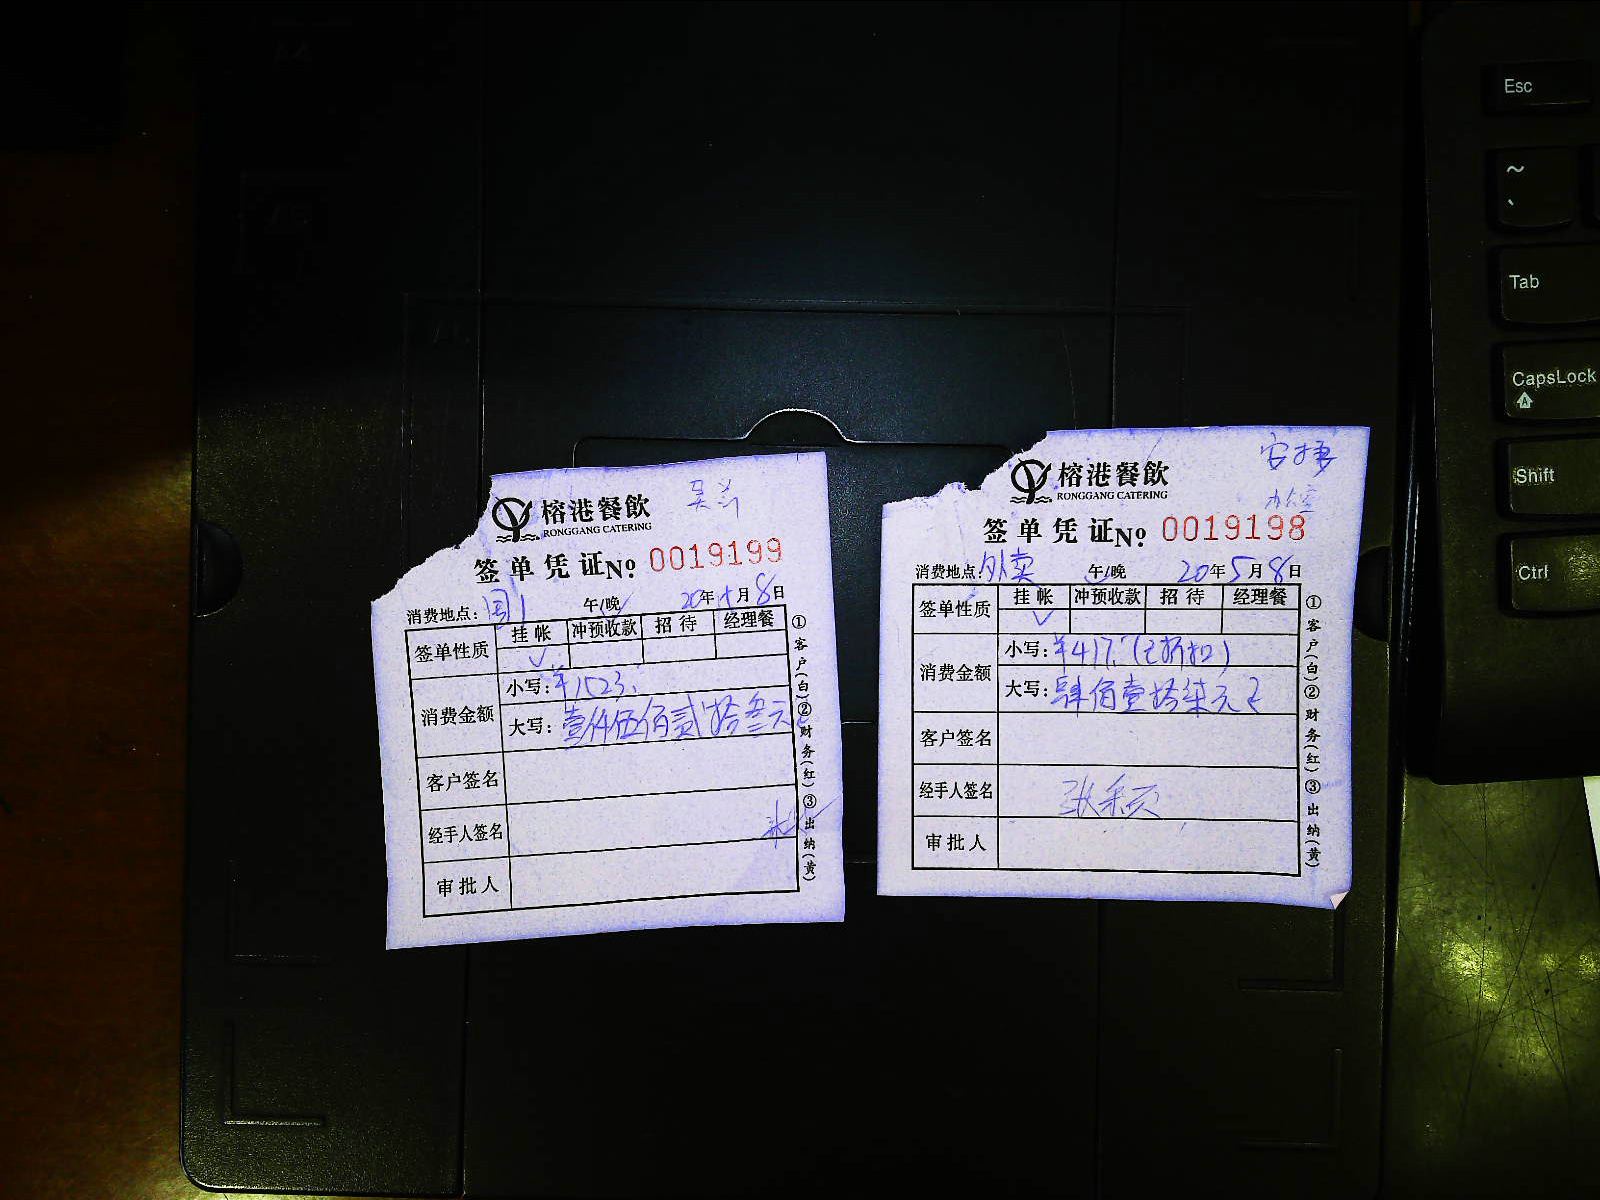 榕港餐飲
RONGGANG CATERING
签单凭证No 0019199
消费地点: 午/晚 20年 月8日
签单性质 挂帐 冲预收款 招待 经理餐
✓
消费金额
小写:¥1523.
大写:壹仟伍佰贰拾叁元
客户签名
经手人签名
审批人
①客户(白)②财务(红)③出纳(黄)
榕港餐飲
RONGGANG CATERING
签单凭证No 0019198
消费地点:外卖 午/晚 20年5月8日
签单性质 挂帐 冲预收款 招待 经理餐
✓
消费金额
小写:¥417.(已折扣)
大写:肆佰壹拾柒元
客户签名
经手人签名
审批人
①客户(白)②财务(红)③出纳(黄)
Esc
~
`
Tab
CapsLock
Shift
Ctrl